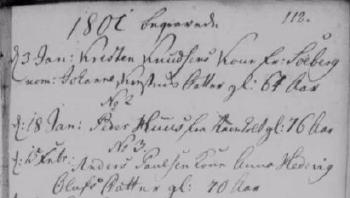 1801 begravede 112.
d 3 Jan: Kirsten Knudsens Kone fr: Soeberg
nom: Johanne Datter gl: 64 Aar
No 2
d: 18 Jan: Peder Huus fra gl: 76 Aar
No 3.
d: 15 Febr: Anders Paulsen Kone Anna Hedevig
Olufs Datter gl: 70 Aar